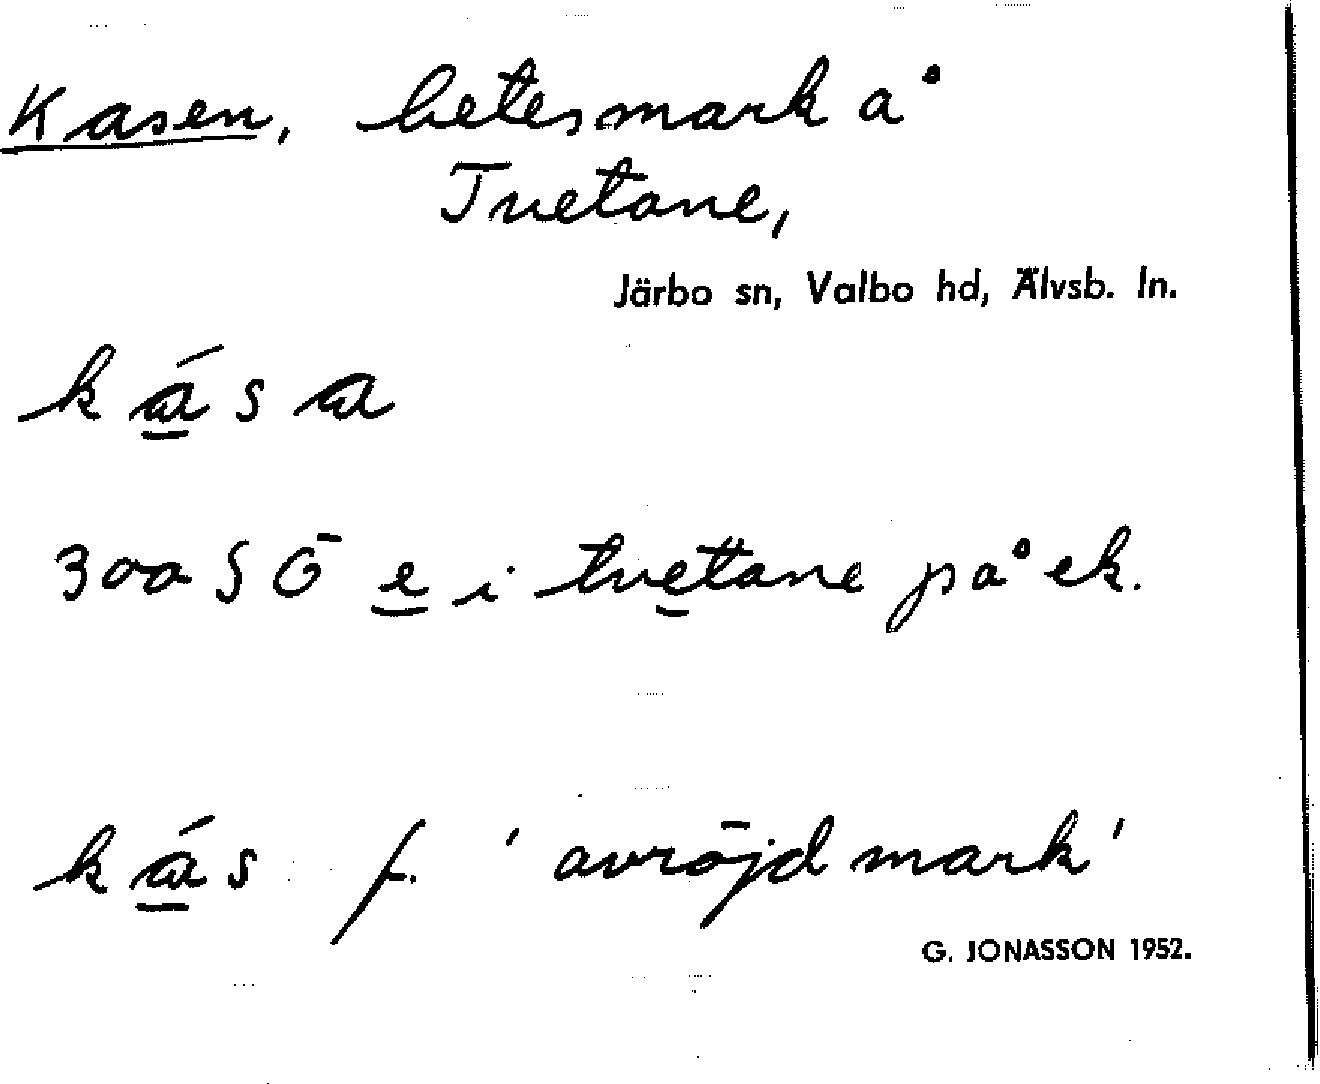 Kasen, betesmark å
Tvetane,
Järbo sn, Valbo hd, Älvsb. ln.
ká̱sa
300 SÖ e̱ i tve̱tane på ek.
ká̱s f. 'avröjd mark'
G. JONASSON 1952.